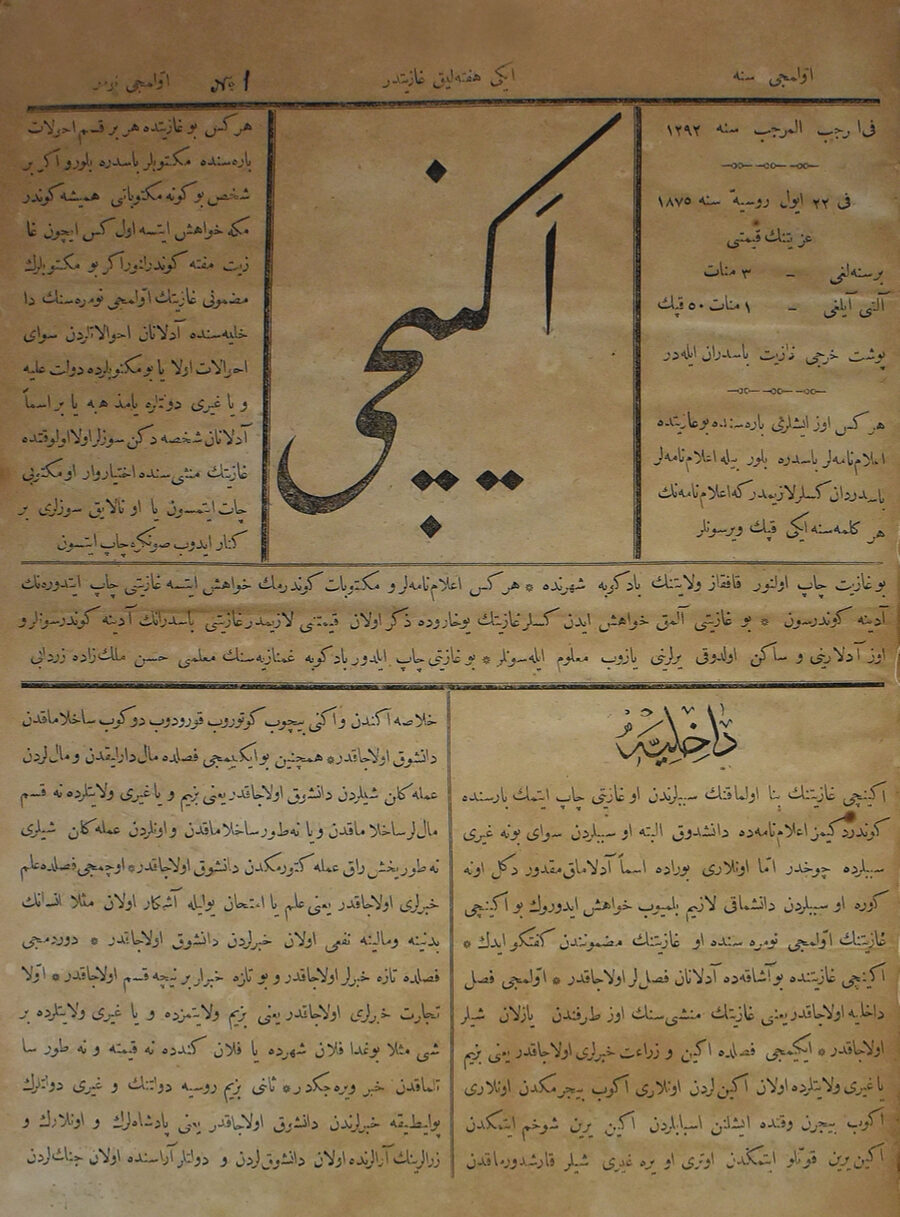 اوّلمجی سنه
ایکی هفته‌لیق غازیتدر
№ 1
اوّلمجی نومر
فی ١ رجب المرجب سنه ١٢٩٢
فی ٢٢ ایول روسیة سنه ١٨٧٥
غزیتنك قیمتی
برسنه‌لغی – ٣ منات
آلتی آیلغی – ١ منات ٥٠ قپك
پوشت خرجی غازیت باسدران ایله‌در
هر کس اوز ایشلری باره‌سنده بوغازیتده
اعلام‌نامه‌لر باسدره بلور بیله اعلام‌نامه‌لر
باسدردان کسلر لازیمدر که اعلام نامه‌نك
هر کلمه‌سنه ایکی قپك ویرسونلر
اکینچی
هر کس بو غازیتده هر بر قسم احولات
باره‌سنده مکتوبلر باسدره بلورو اکر بر
شخص بو کونه مکتوباتی همیشه کوندر
مکه خواهش ایتسه اول کس ایچون غا
زیت مفته کوندرلنور اکر بو مکتوبلرك
مضمونی غازیتك اوّلمجی نومره‌سنك دا
خلیه‌سنده آدلانان احوالاتلردن سوای
احوالات اولا یا بو مکتوبلرده دولت علیه
و یا غیری دوتلره یامذهبه یا بر اسماً
آدلانان شخصه دکن سوزلر اولا اولوقتده
غازیتك منشی‌سنده اختیاروار او مکتوبی
چاپ ایتمسون یا او نالایق سوزلری بر
کنار ایدوب صونکره چاپ ایتسون
بو غازیت چاپ اولنور قافقاز ولایتنك بادکوبه شهرنده * هر کس اعلام‌نامه‌لر و مکتوبات کوندرمك خواهش ایتسه غازیتی چاپ ایتدوره‌نك
آدینه کوندرسون * بو غازیتی آلمق خواهش ایدن کسلر غازیتك یوخاروده ذکر اولان قیمتنی لازیمدر غازیتی باسدرانك آدینه کوندرسونلر و
اوز آدلارینی و ساکن اولدوقی یرلرینی یازوب معلوم ایله‌سونلر * بو غازیتی چاپ ایلدور بادکوبه غمنازیه‌سنك معلمی حسن ملك‌زاده زردابی
داخلیه
اکینچی غازیتنك بنا اولماقنك سببلرندن او غازیتی چاپ ایتمك بارسنده
کوندردکیمز اعلام‌نامه‌ده دانشدوق البته او سببلردن سوای بونه غیری
سببلرده چوخدر امّا اونلاری بوراده اسماً آدلاماق مقدور دکل اونه
کوره او سببلردن دانشماقی لازیم بلمیوب خواهش ایدوروك بو اکینچی
غازیتنك اوّلمجی نومره سنده او غازیتك مضمونندن کفتکو ایدك *
اکینچی غازیتنده بو آشاقه‌ده آدلانان فصل‌لر اولاجاقدر * اوّلمجی فصل
داخلیه اولاجاقدر یعنی غازیتك منشی‌سنك اوز طرفندن یازلان شیلر
اولاجاقدر * ایکیمجی فصلده اکین و زراعت خبرلری اولاجاقدر یعنی بزیم
یا غیری ولایتلرده اولان اکین‌لردن اونلاری اکوب بیجرمکدن اونلاری
اکوب بیجرن وقنده ایشلنن اسبابلردن اکین یرین شوخم ایتمکدن
اکین یرین قوتلو ایتمکدن اوتری او یره غیری شیلر قارشدورماقدن
خلاصه اکندن و اکنی بیچوب کوتوروب قورودوب دوکوب ساخلاماقدن
دانشوق اولاجاقدر * همچنین بو ایکیمجی فصلده مال دارایقدن و مال لردن
عمله کلن شیلردن دانشوق اولاجاقدر یعنی بزیم و یا غیری ولایتلرده نه قسم
مال‌لر ساخلاماقدن و یا نه‌طور ساخلاماقدن و اونلردن عمله کلن شیلری
نه طور یخش راق عمله کتورمکدن دانشوق اولاجاقدر * اوچمجی فصلده علم
خبرلری اولاجاقدر یعنی علم یا امتحان یوایله آشکار اولان مثلا انسانك
بدنینه و مالینه نفعی اولان خبرلردن دانشوق اولاجاقدر * دوردمجی
فصلده تازه خبرلر اولاجاقدر و بو تازه خبرلر بر نیچه قسم اولاجاقدر * اوّلا
تجارت خبرلری اولاجاقدر یعنی بزیم ولایتمزده و یا غیری ولایتلرده بر
شی مثلا بوغدا فلان شهرده یا فلان کندده نه قیمته و نه طور سا
تلماقدن خبر ویره جکدر * ثانی بزیم روسیه دولتنك و غیری دولتلرك
پولیطیقه خبرلرندن دانشوق اولاجاقدر یعنی پادشاه‌لرك و اونلارك و
زرالرینك آرالرنده اولان دانشوق‌لردن و دولتلر آراسنده اولان جنك‌لردن